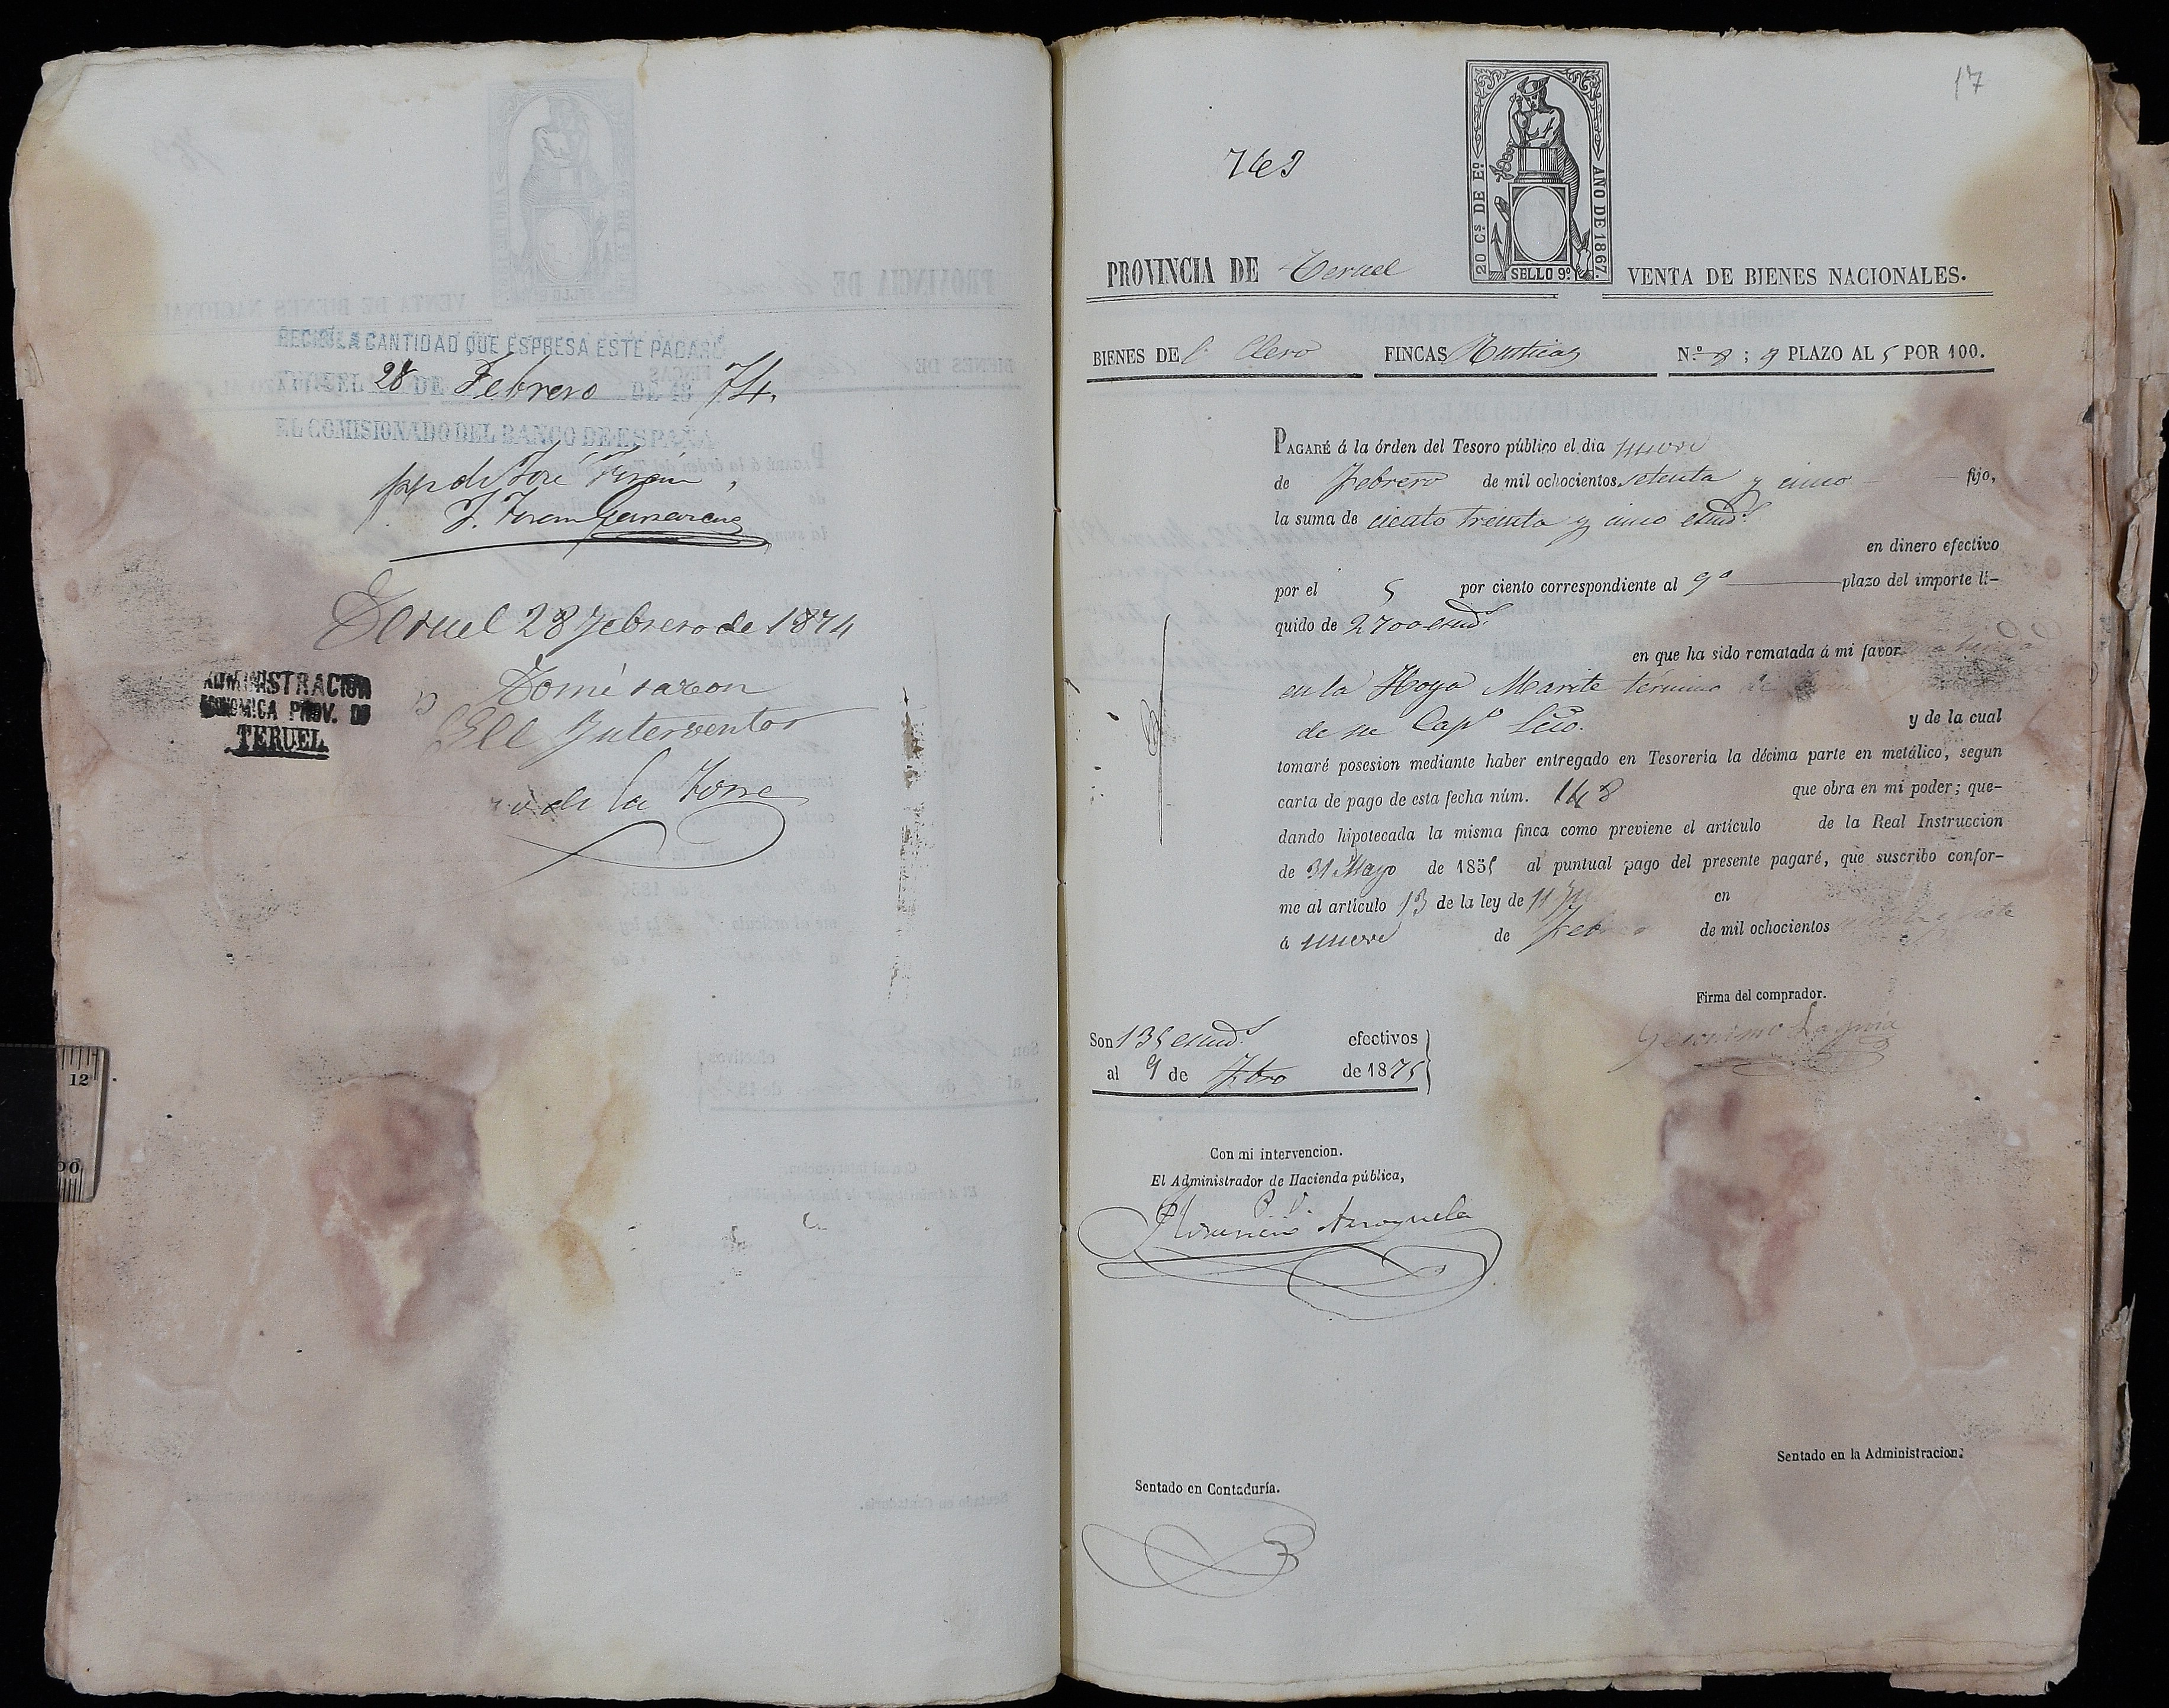 RECIBÍ LA CANTIDAD QUE ESPRESA ESTE PAGARÉ
TERUEL 28 DE Febrero DE 18 74.
EL COMISIONADO DEL BANCO DE ESPAÑA
pp de José
Teruel 28 Febrero de 1874
Tomé razon
El Interventor
de la Torre
ADMINISTRACION
ECONOMICA PROV. DE
TERUEL
17
762
20 Cs DE Eo
AÑO DE 1867.
SELLO 9º
PROVINCIA DE Teruel
VENTA DE BIENES NACIONALES.
BIENES DEl Clero FINCAS Rusticas N.º 8 ; 9 PLAZO AL 5 POR 100.
PAGARÉ á la órden del Tesoro público el dia nueve
de Febrero de mil ochocientos setenta y cinco fijo,
la suma de ciento treinta y cinco escud.s
en dinero efectivo
por el 5 por ciento correspondiente al 9º plazo del importe lí-
quido de 2700 escud.s
en que ha sido rematada á mi favor
en la Hoya Marite término de
de su Capº Ecco. y de la cual
tomaré posesion mediante haber entregado en Tesorería la décima parte en metálico, segun
carta de pago de esta fecha núm. 148 que obra en mi poder; que-
dando hipotecada la misma finca como previene el artículo de la Real Instruccion
de 31 Mayo de 1855 al puntual pago del presente pagaré, que suscribo confor-
me al artículo 13 de la ley de 11 en
á nueve de Febrero de mil ochocientos sesenta y siete
Firma del comprador.
Geronimo Laguia
Son 135 escud.s efectivos
al 9 de Fbro de 1875
Con mi intervencion.
El Administrador de Hacienda pública,
P. I.
Sentado en la Administracion.
Sentado en Contaduría.